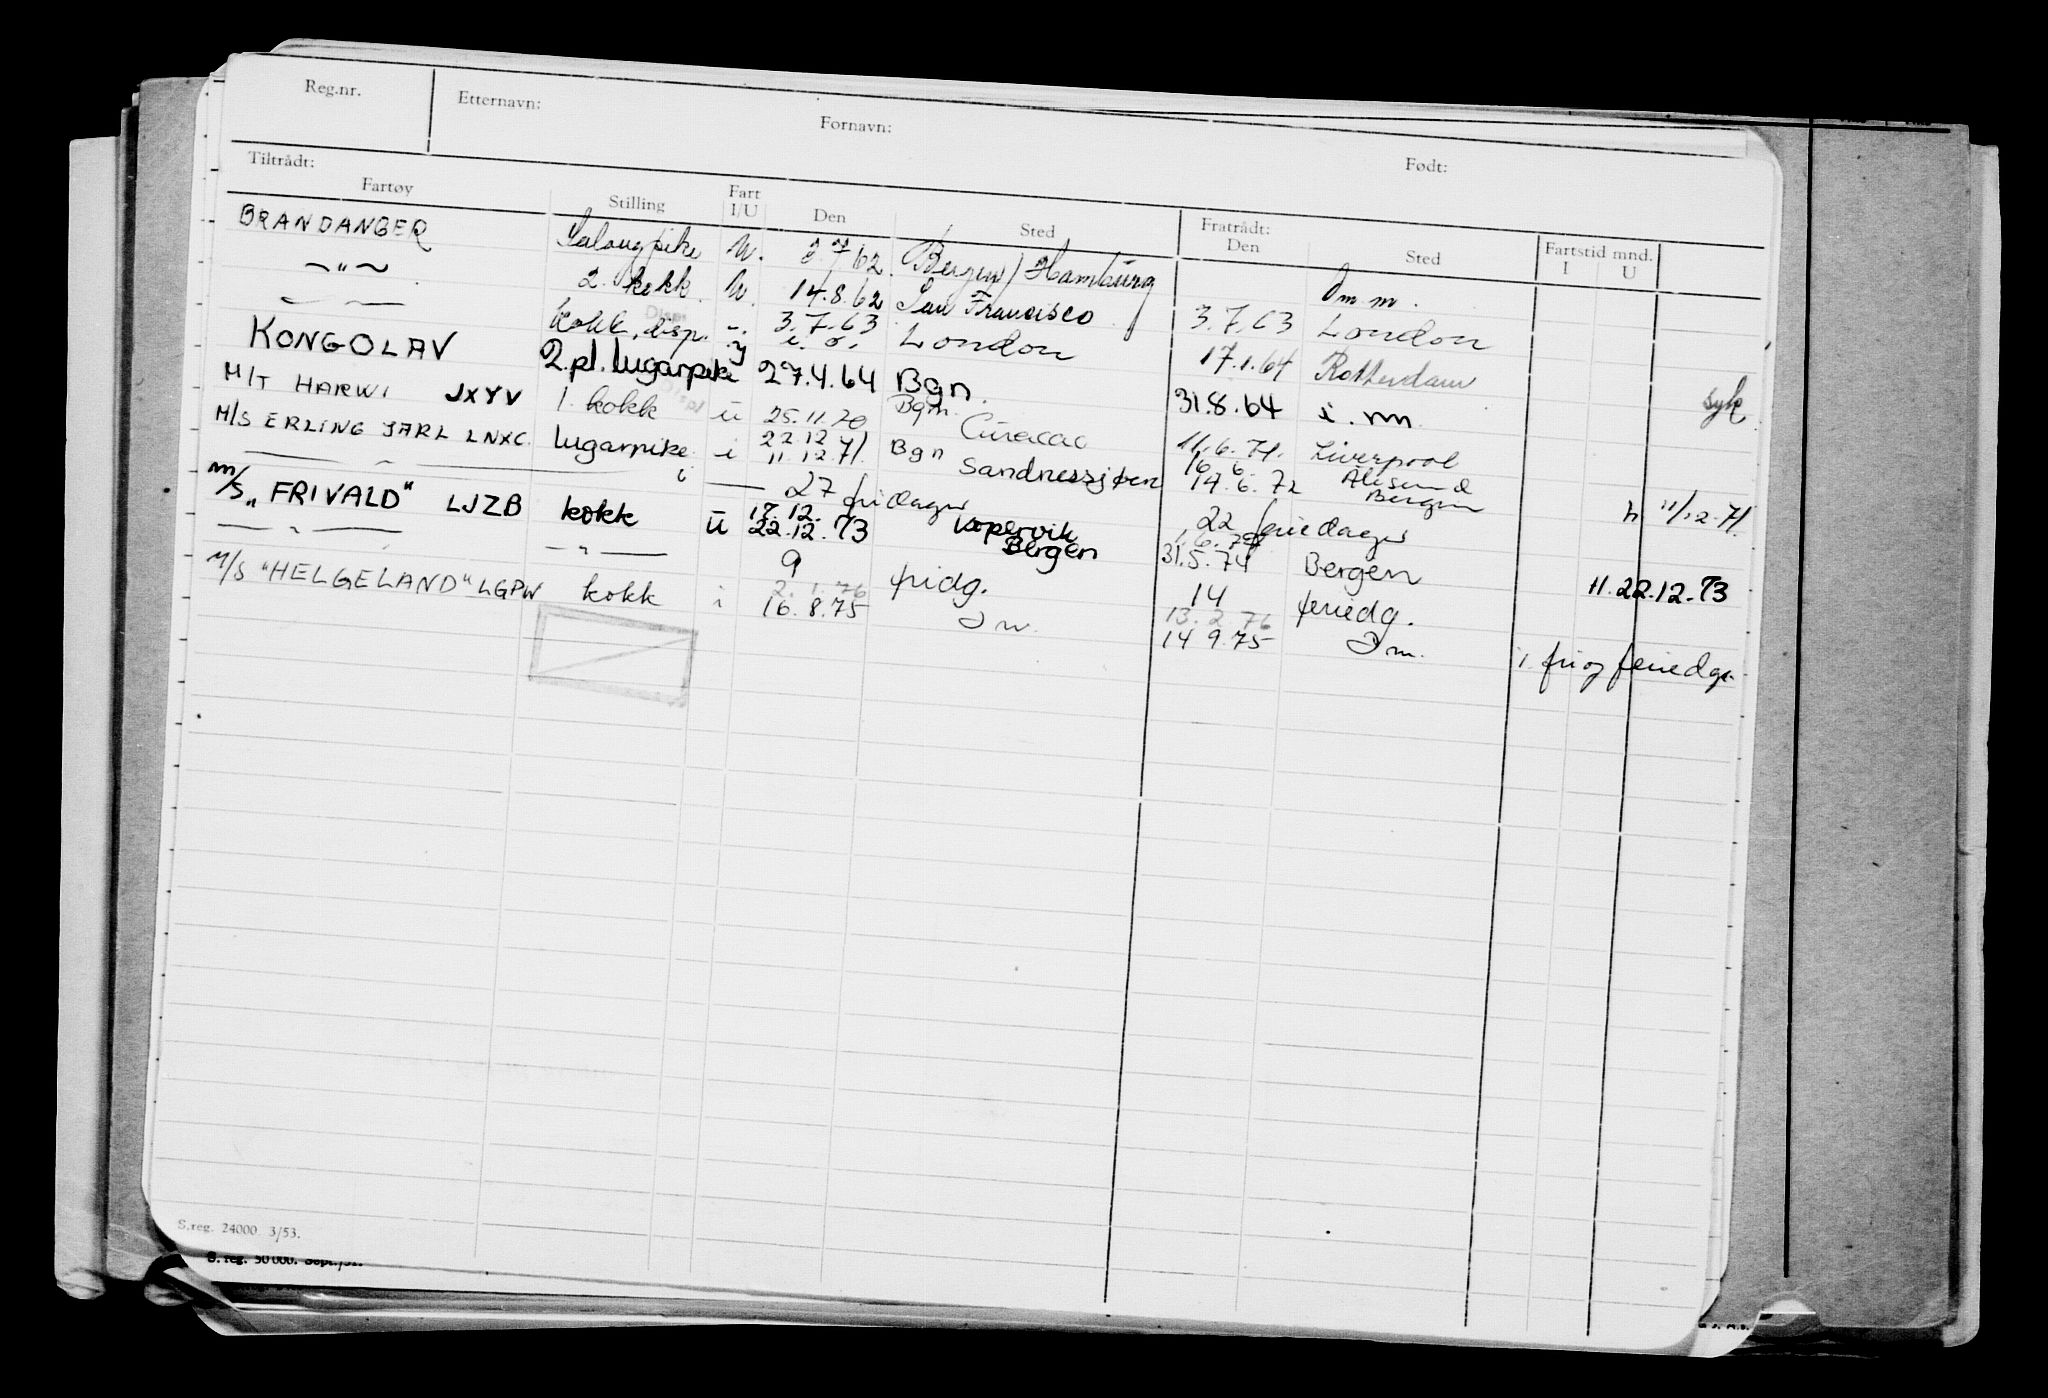 Reg.nr. Etternavn: Fornavn: Født:
Tiltrådt: Fratrådt:
Fartøy Stilling Fart I/U Den Sted Den Sted Fartstid mnd. I U
BRANDANGER Salongpike U. 3 7 62 Bergen/Hamburg I m.m.
— " — 2. kokk U. 14.8.62 San Francisco 3.7.63 London
— — Kokk, disp. -. 3.7.63 London 17.1.64 Rotterdam syk
KONGOLAV 2.pl. lugarpike y 27.4.64 Bgn. 31.8.64 i.m
M/T HARWI JXYV 1. kokk ü 25.11.70 Bgn. Curacao 11.6.71. Liverpool
M/S ERLING JARL LNXC. lugarpike i 22.12 11.12.71. Bgn Sandnessjøen 16 6. 14.6.72 Ålesund Bergen h 11/12.71.
— " — i — 27 fridager 22 feriedager
M/S „FRIVALD" LJZB kokk ü 17.12. 22.12.73 Kopervik Bergen 1.6.74 31.5.74 Bergen 11.22.12.73
— " — — " — 9 fridg. 14 feriedg.
M/S "HELGELAND" LGPW kokk i 2.1.76 16.8.75 I m. 13.2 76 14 9.75 I m. i fri og feriedgr
S.reg. 24000 3/53.
S. reg. 50 000. Sept./51.